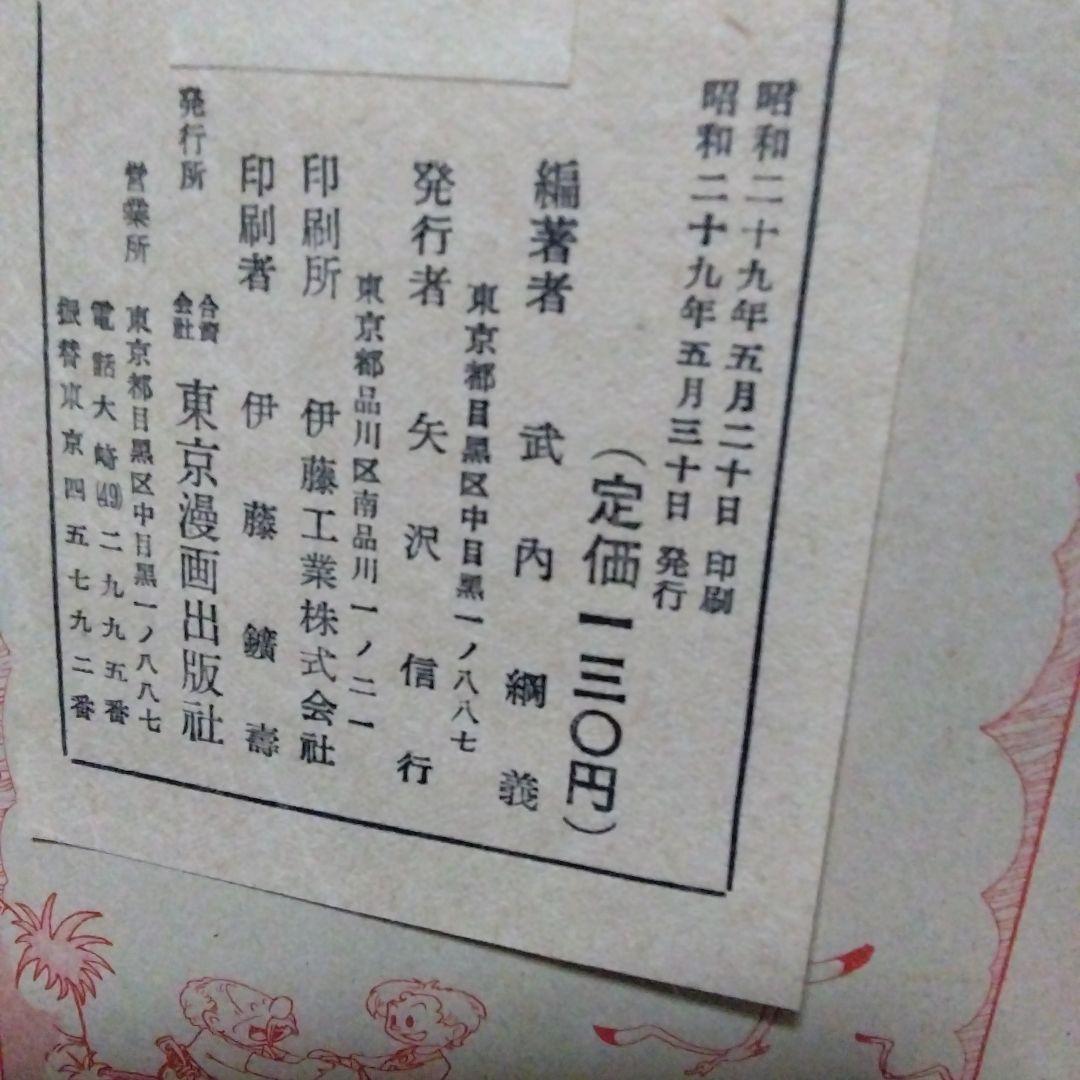 昭和二十九年五月二十日 印刷
昭和二十九年五月三十日 発行
(定価一三〇円)
編著者 武内綱義
東京都目黒区中目黒一ノ八八七
発行者 矢沢信行
東京都品川区南品川一ノ二一
印刷所 伊藤工業株式会社
印刷者 伊藤鑛壽
発行所 合資会社 東京漫画出版社
営業所 東京都目黒区中目黒一ノ八八七
電話大崎(49)二九九五番
振替東京四五七九二番